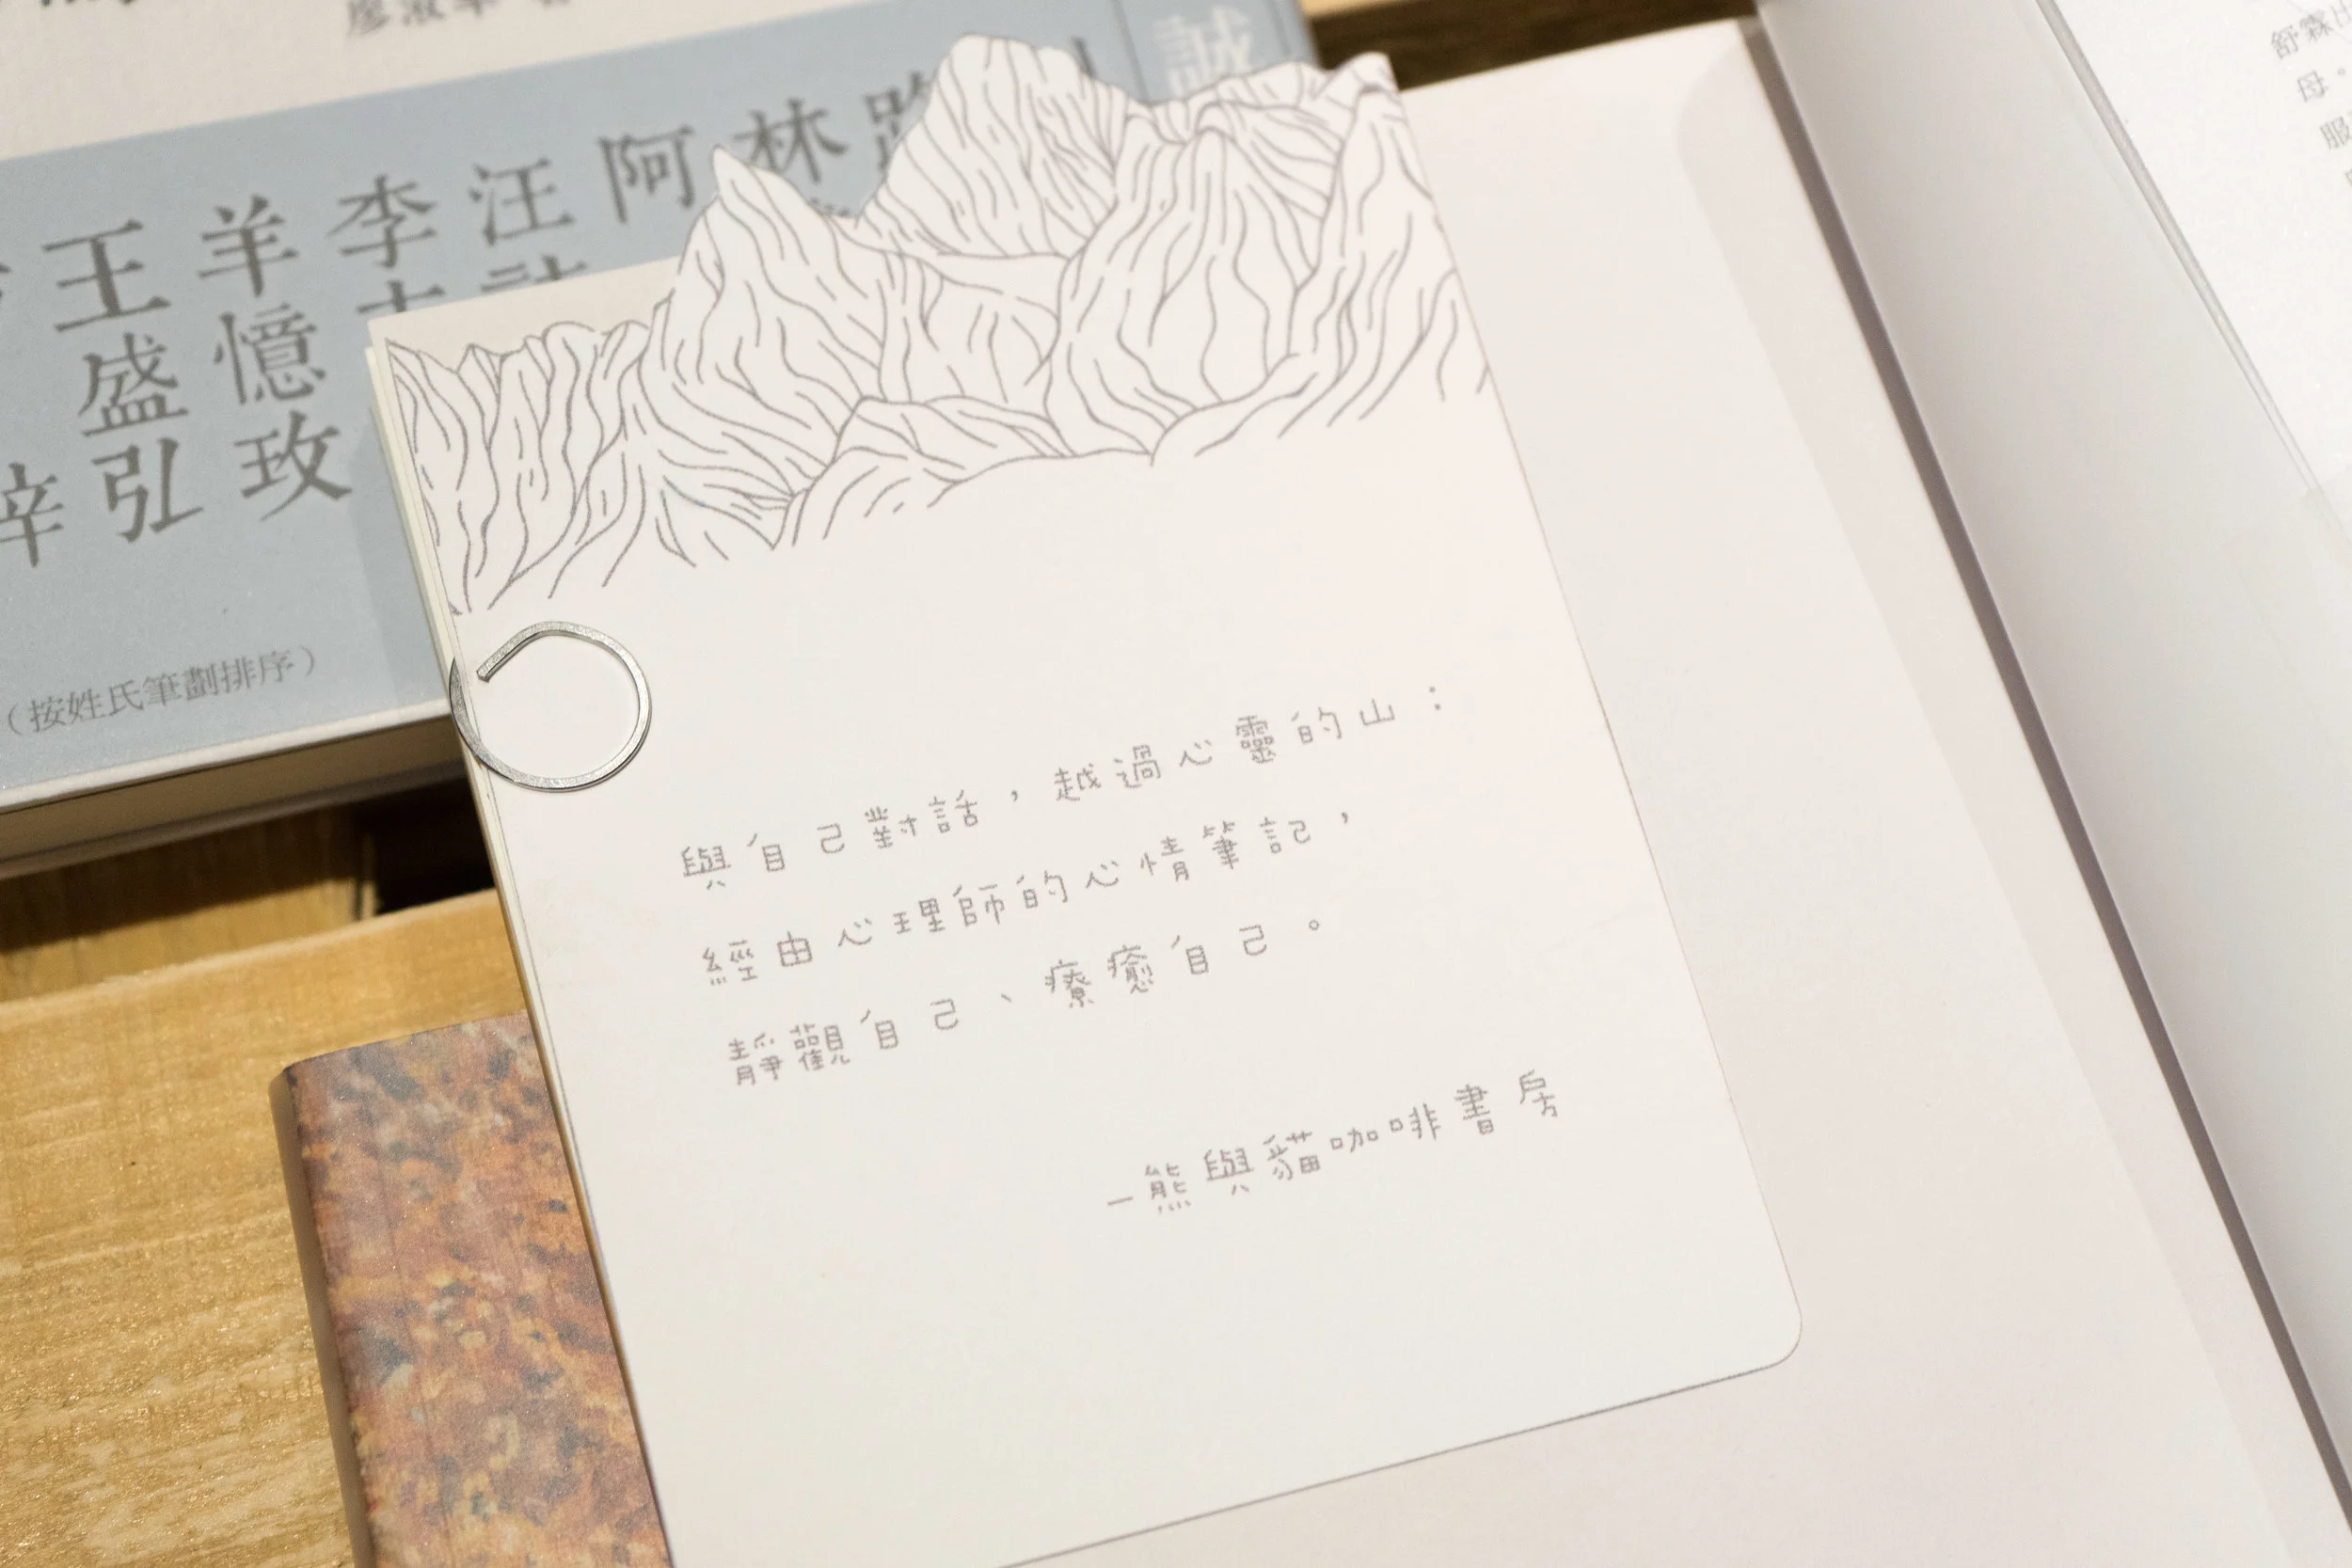 誠
林
阿
汪
李
羊憶玫
王盛弘
（按姓氏筆劃排序）
與自己對話，越過心靈的山：
經由心理師的心情筆記，
靜觀自己、療癒自己。
—熊與貓咖啡書房
母。